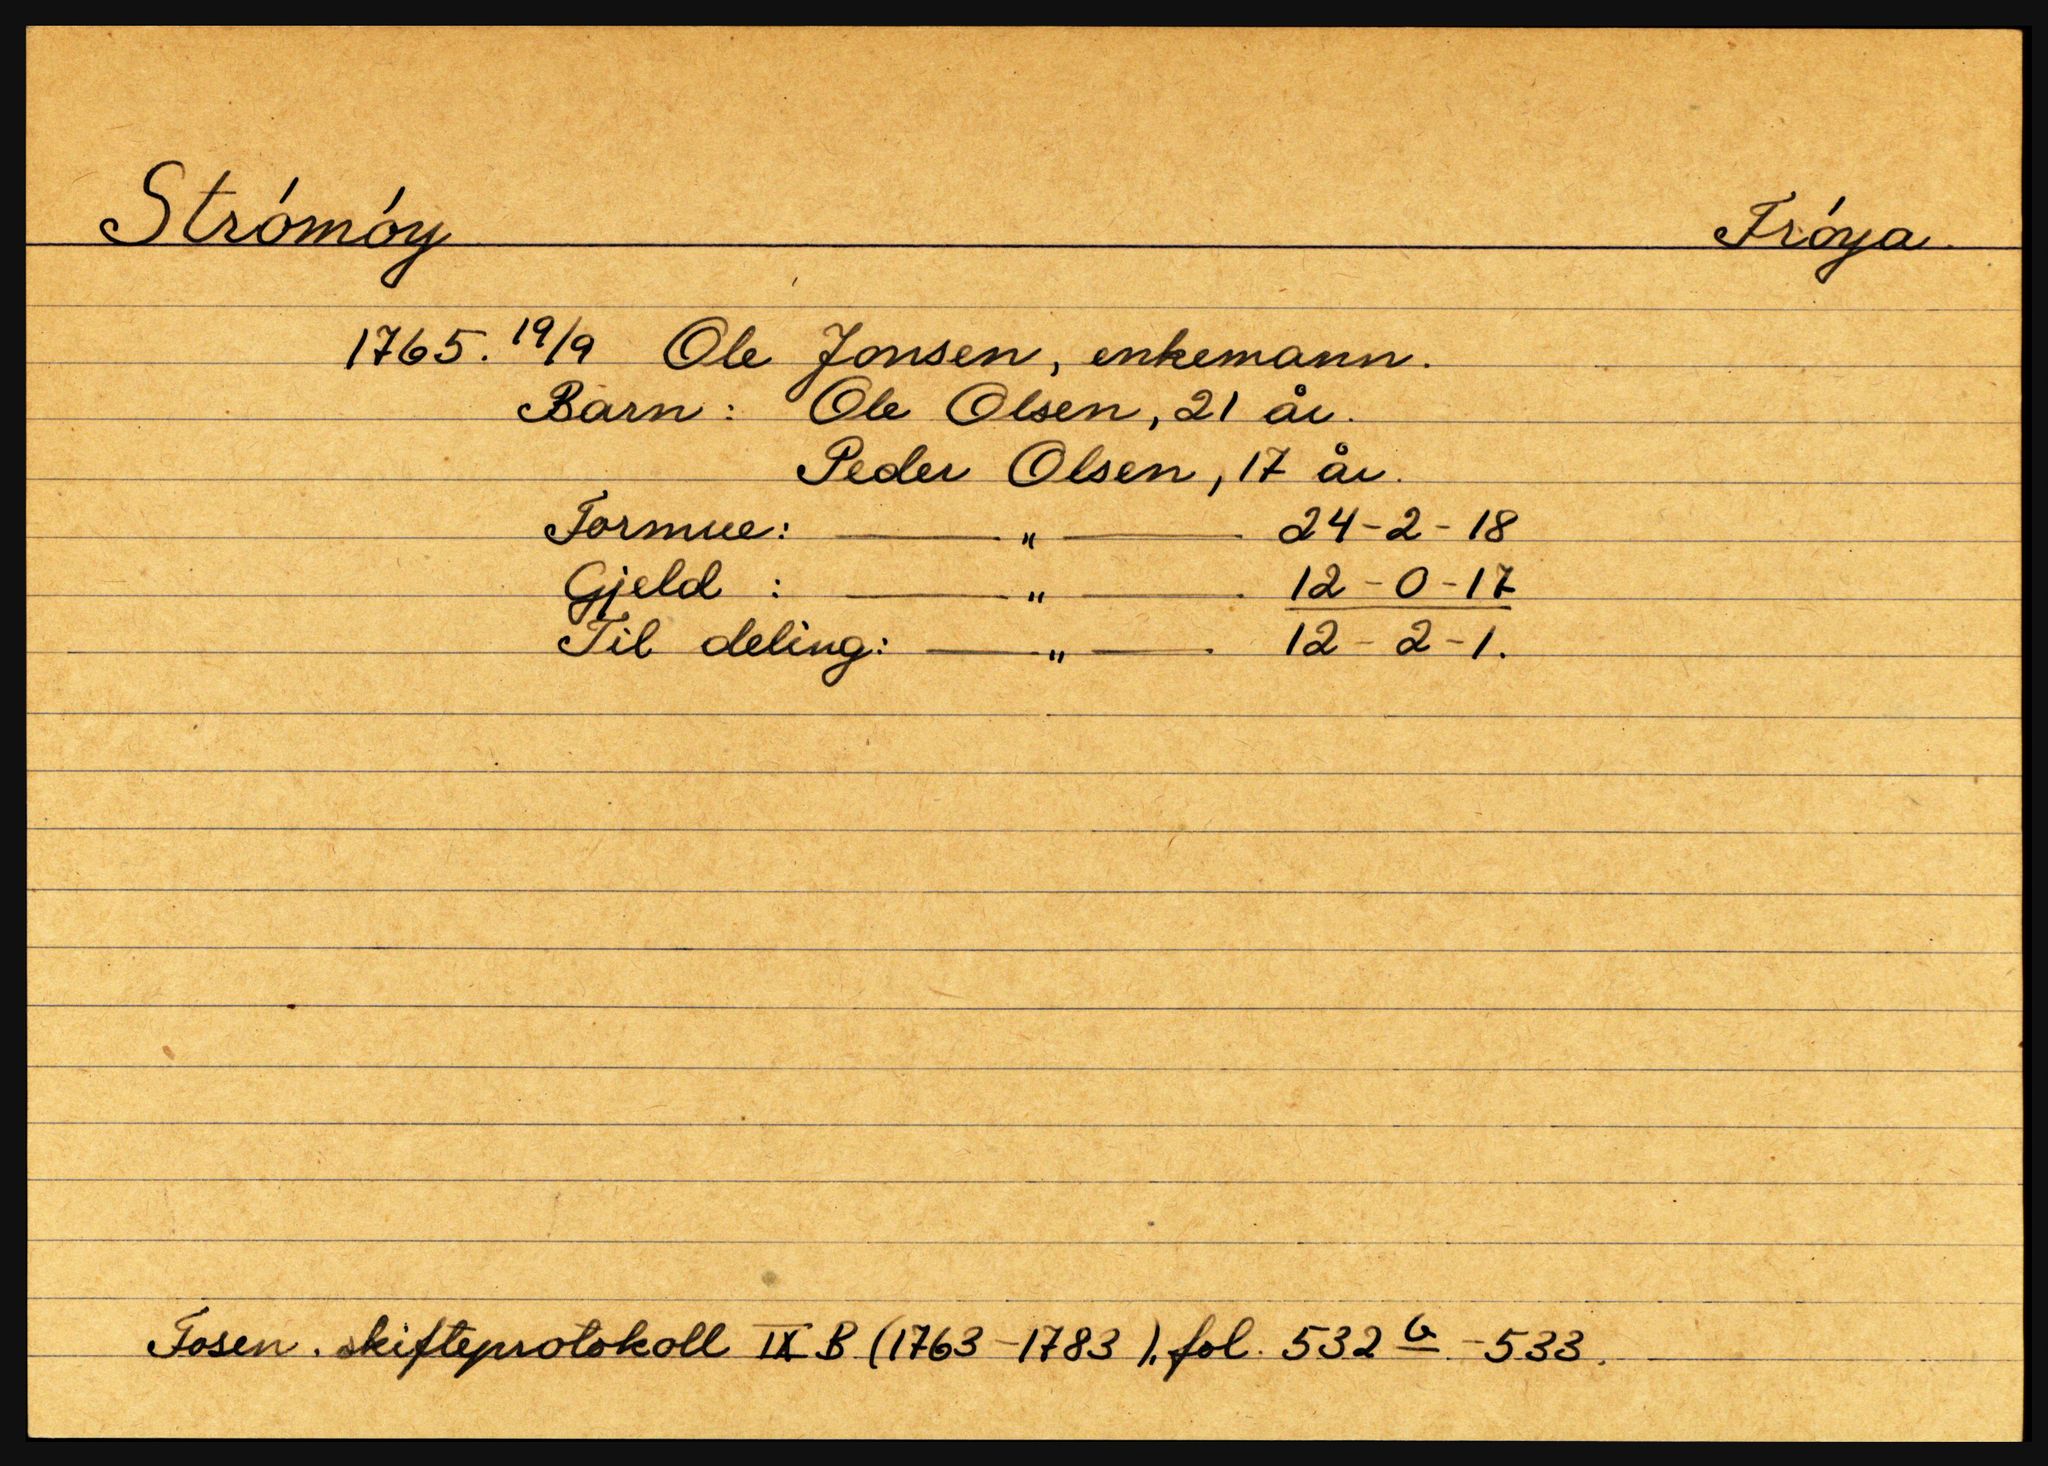 Strómóy Fróya.
1765. 19/9 Ole Jonsen, enkemann.
Barn: Ole Olsen, 21 år.
Peder Olsen, 17 år.
Formue: — " — 24-2-18
Gjeld : — " — 12-0-17
Til deling: — " — 12-2-1.
Fosen. skifteprotokoll IX B (1763-1783), fol. 532 b - 533.